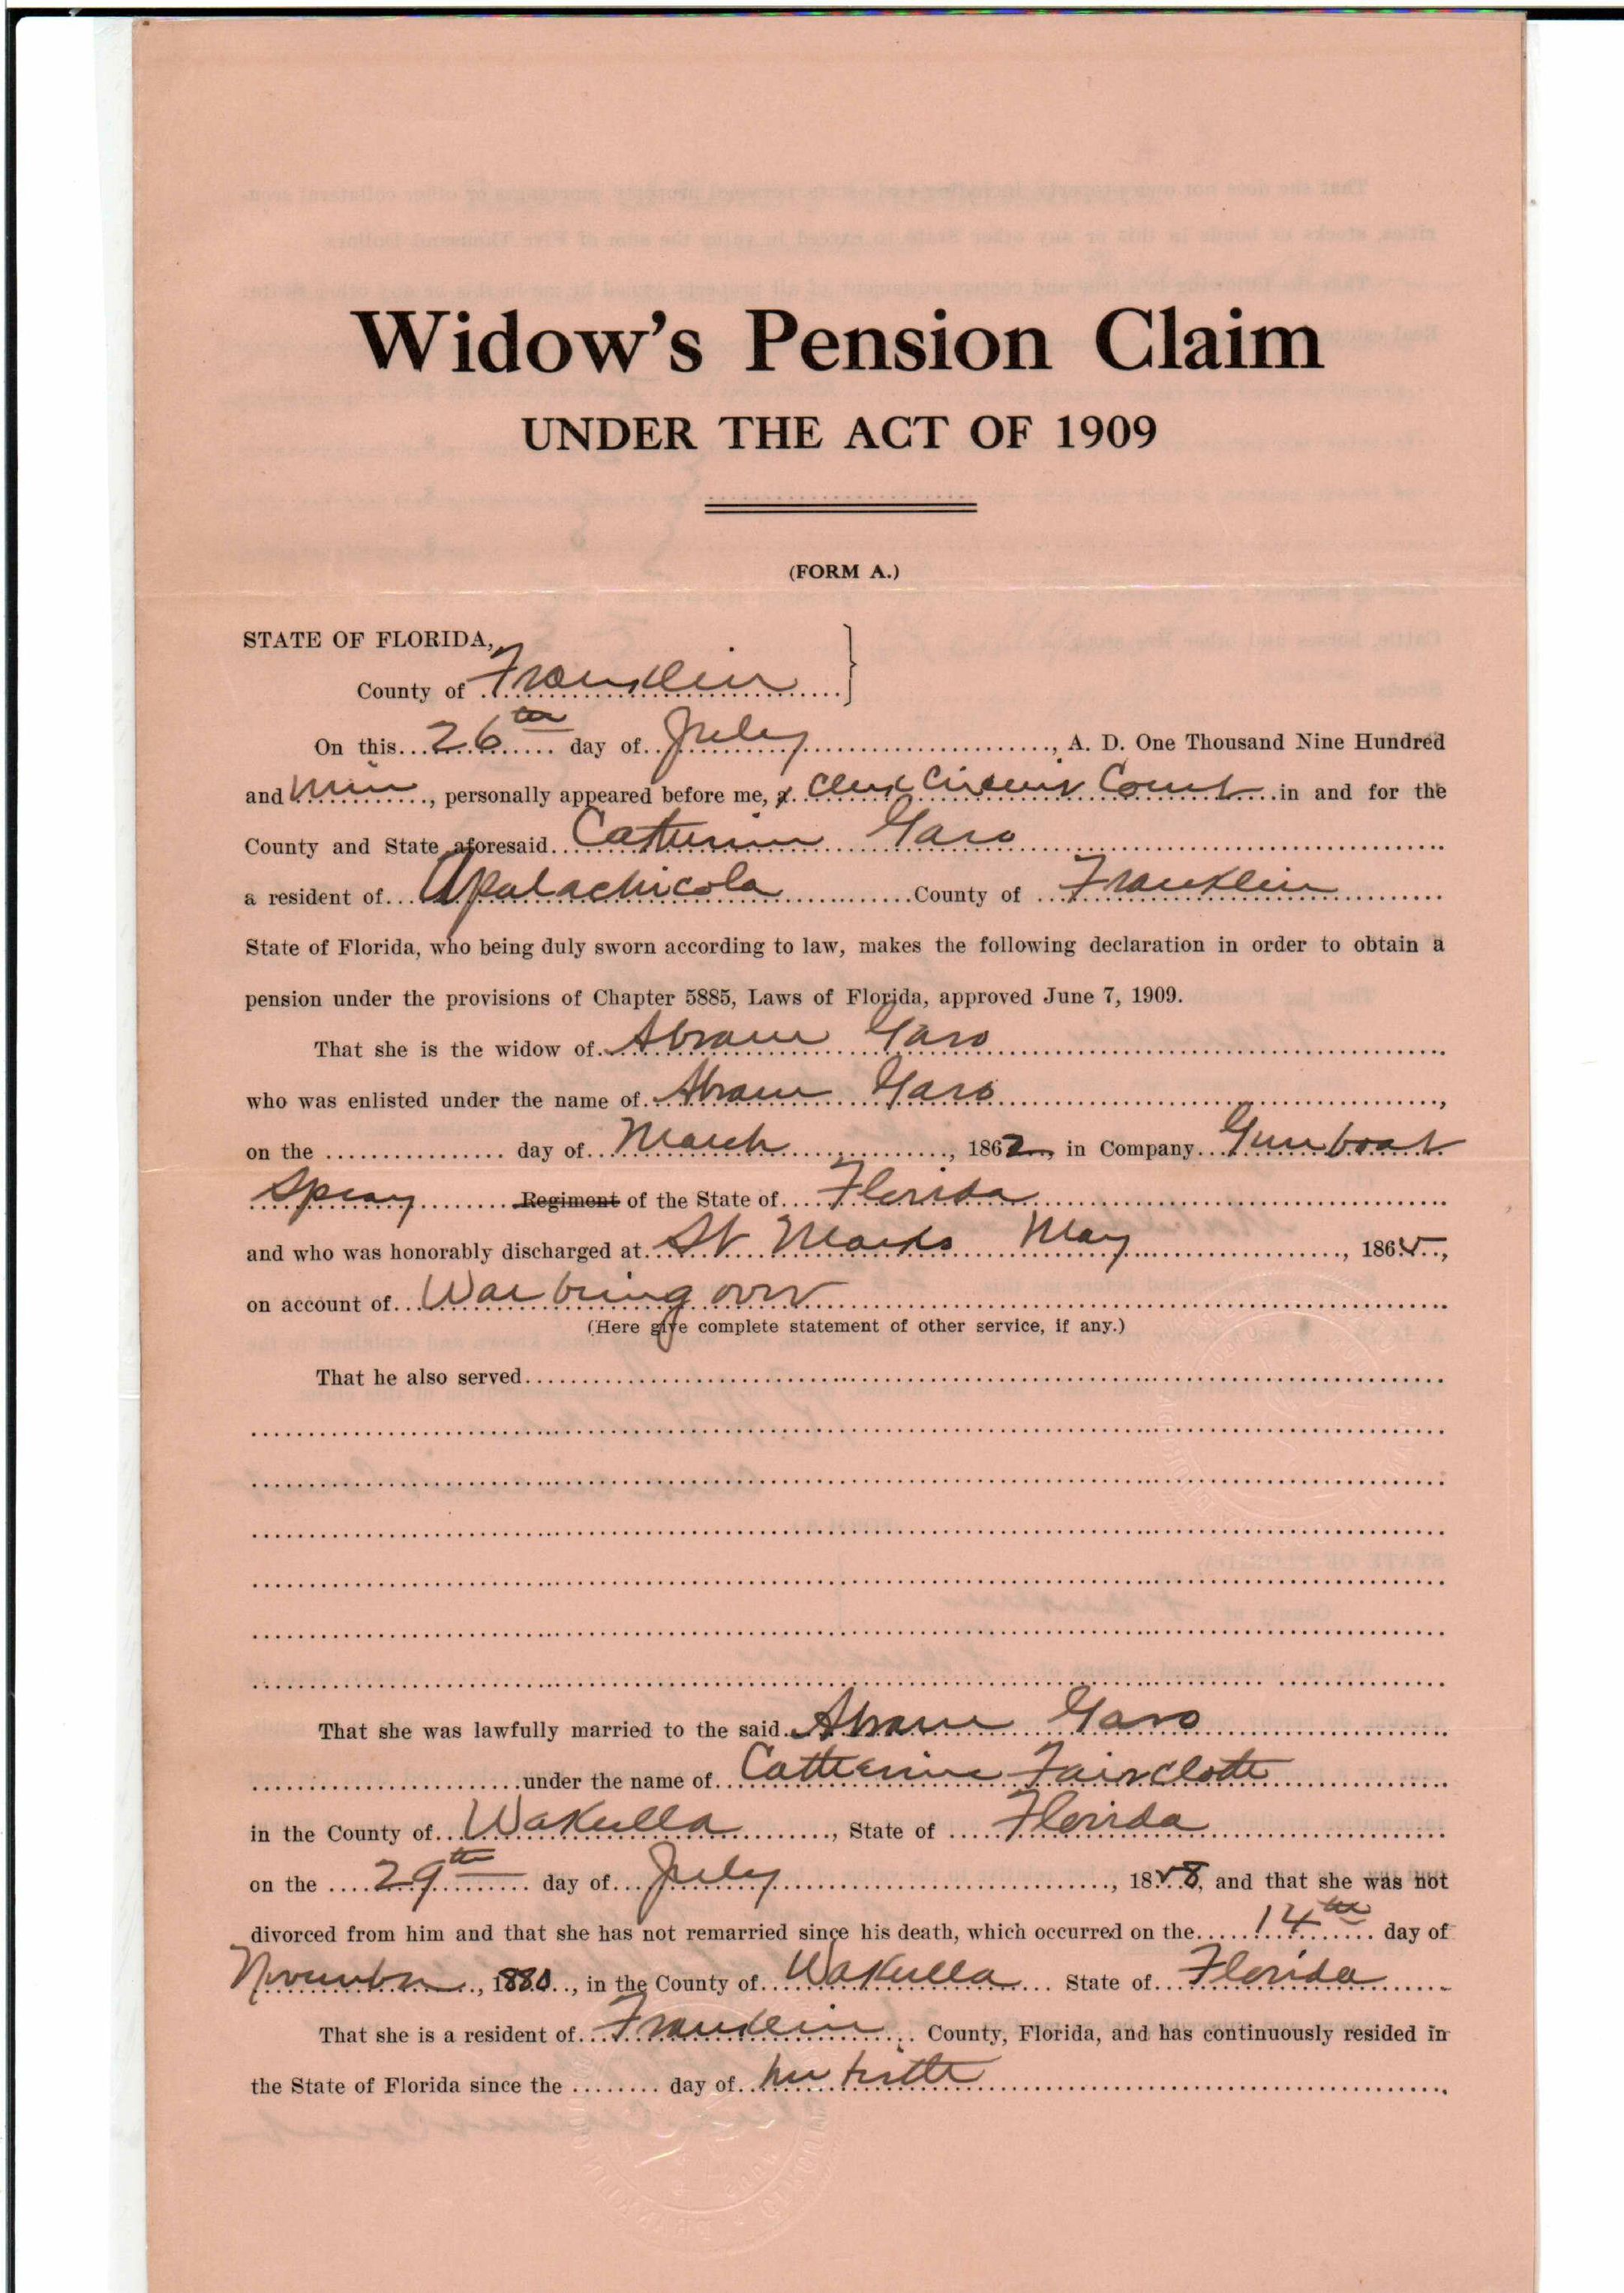 Widow's Pension Claim
UNDER THE ACT OF 1909
(FORM A.)
STATE OF FLORIDA,
County of Franklin
On this 26th day of July, A. D. One Thousand Nine Hundred
and Nine, personally appeared before me, a Clerk Circuit Court in and for the
County and State aforesaid Catherine Garo
a resident of Apalachicola County of Franklin
State of Florida, who being duly sworn according to law, makes the following declaration in order to obtain a
pension under the provisions of Chapter 5885, Laws of Florida, approved June 7, 1909.
That she is the widow of Abram Garo
who was enlisted under the name of Abram Garo,
on the day of March, 1862, in Company Gunboat
Spray Regiment of the State of Florida
and who was honorably discharged at St Marks May, 1865,
on account of War being over
(Here give complete statement of other service, if any.)
That he also served
That she was lawfully married to the said Abram Garo
under the name of Catherine Faircloth
in the County of Wakulla, State of Florida
on the 29th day of July, 1858, and that she was not
divorced from him and that she has not remarried since his death, which occurred on the 14th day of
November, 1880, in the County of Wakulla State of Florida
That she is a resident of Franklin County, Florida, and has continuously resided in
the State of Florida since the day of her birth